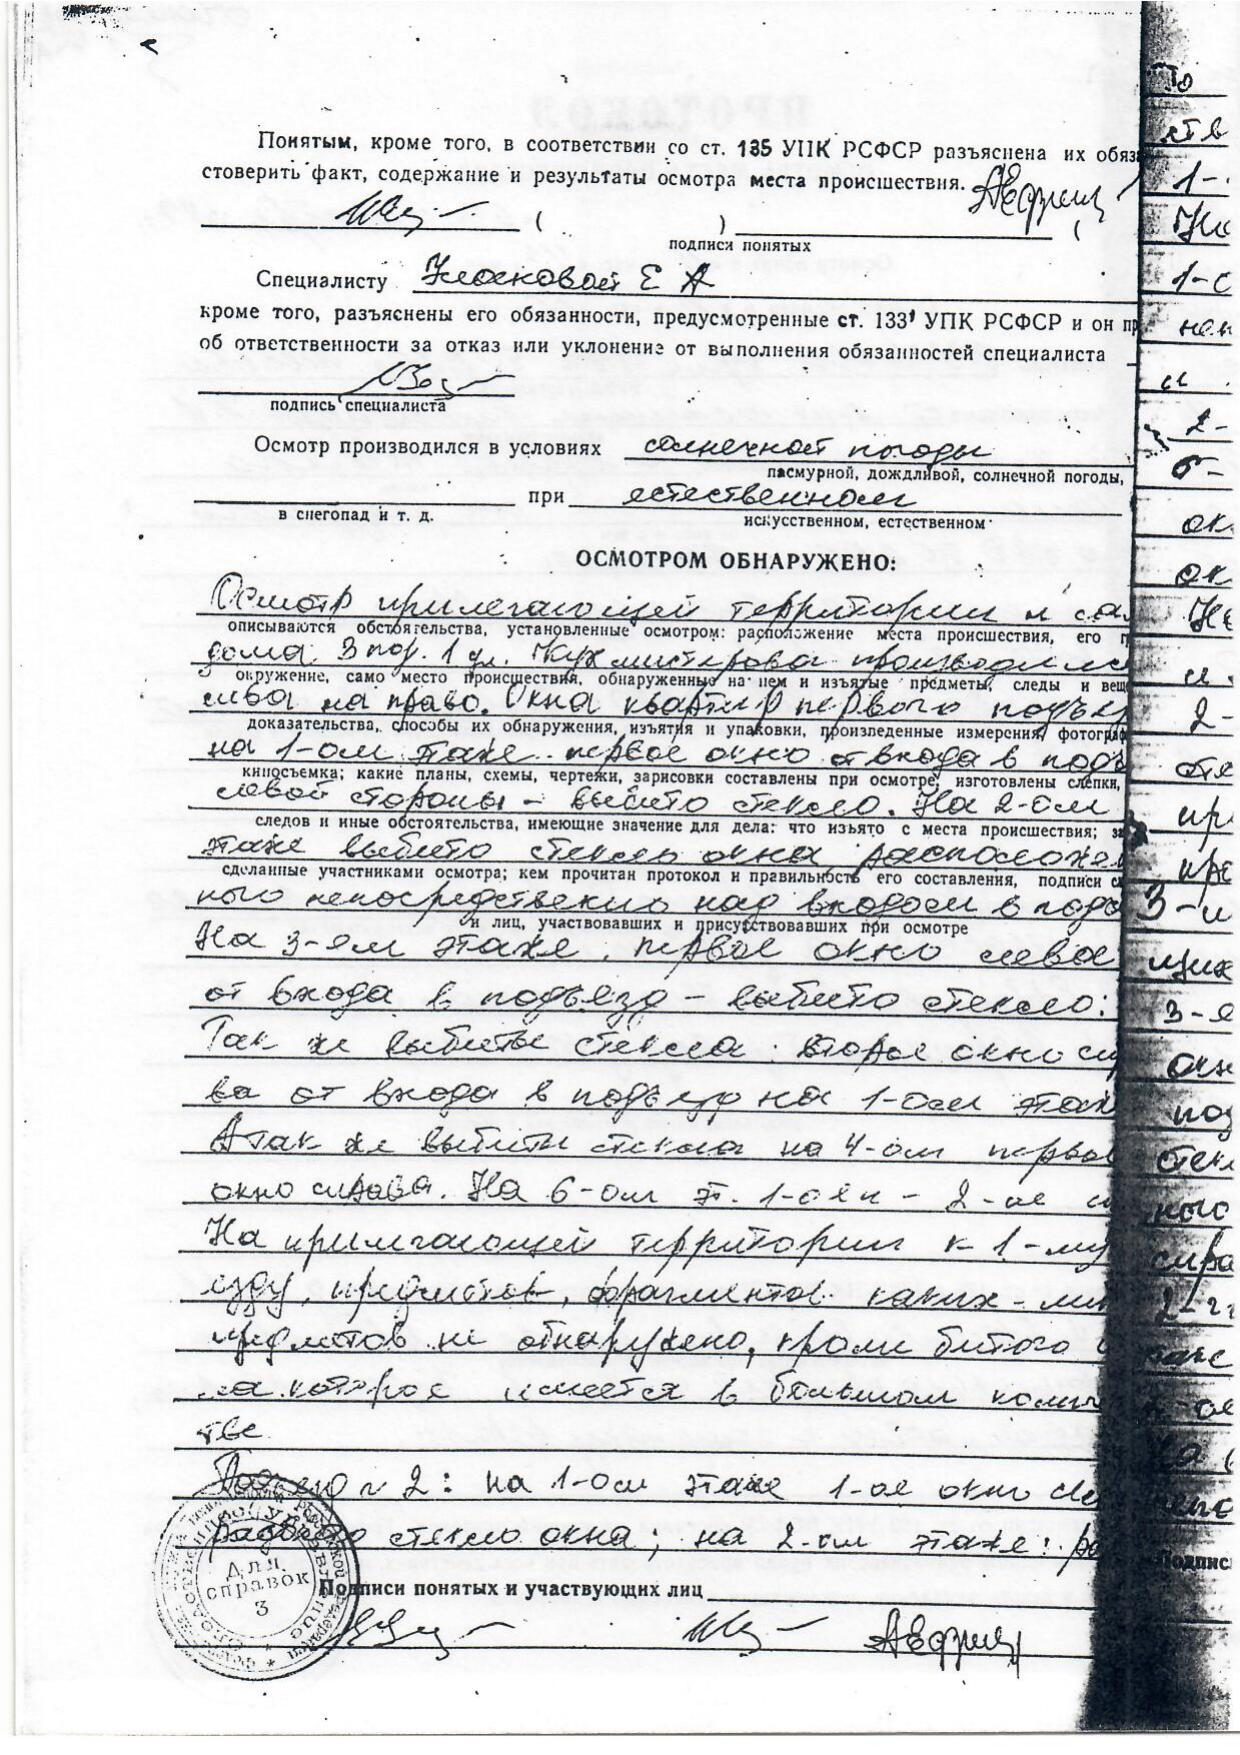 Понятым, кроме того, в соответствии со ст. 135 УПК РСФСР разъяснена их обяз
стоверить факт, содержание и результаты осмотра места происшествия.
( ) (
подписи понятых
Специалисту Е А
кроме того, разъяснены его обязанности, предусмотренные ст. 133¹ УПК РСФСР и он пр
об ответственности за отказ или уклонение от выполнения обязанностей специалиста
подпись специалиста
Осмотр производился в условиях солнечной погоды
пасмурной, дождливой, солнечной погоды,
при естественном
в снегопад и т. д. искусственном, естественном
ОСМОТРОМ ОБНАРУЖЕНО:
Осмотр прилегающей территории и са
описываются обстоятельства, установленные осмотром: расположение места происшествия, его п
дома 3 по 1 ул. производился
окружение, само место происшествия, обнаруженные на нем и изъятые предметы, следы и вещ
слева на право. Окна квартир первого подъез
доказательства, способы их обнаружения, изъятия и упаковки, произведенные измерения, фотограф
на 1-ом этаже первое окно от входа в подъ
киносъемка; какие планы, схемы, чертежи, зарисовки составлены при осмотре, изготовлены слепки,
левой стороны – выбито стекло. На 2-ом
следов и иные обстоятельства, имеющие значение для дела: что изъято с места происшествия; за
этаже выбито стекло окна, расположен
сделанные участниками осмотра; кем прочитан протокол и правильность его составления, подписи сл
ного непосредственно над входом в подъ
и лиц, участвовавших и присутствовавших при осмотре
На 3-ем этаже. первое окно слева
от входа в подъезд – выбито стекло:
Так же выбиты стекла: второе окно спра
ва от входа в подъезд на 1-ом этаже
А так же выбиты стекла на 4-ом первое
окно справа. На 6-ом эт. – 2-ое
На прилегающей территории к 1-му
езду, предметов, фрагментов каких-либ
предметов не обнаружено, кроме битого с
ла которое имеется в большом колич
тве
Подъезд № 2: на 1-ом этаже 1-ое окно сле
разбито стекло окна; на 2-ом этаже: ра
Подписи понятых и участвующих лиц
Для
справок
3
То
ств
1-
1-с
и
2-
6-
ок
ок
и
2-
пр
3-и
3-я
окн
стек
ного
спра
2-г
Подпис